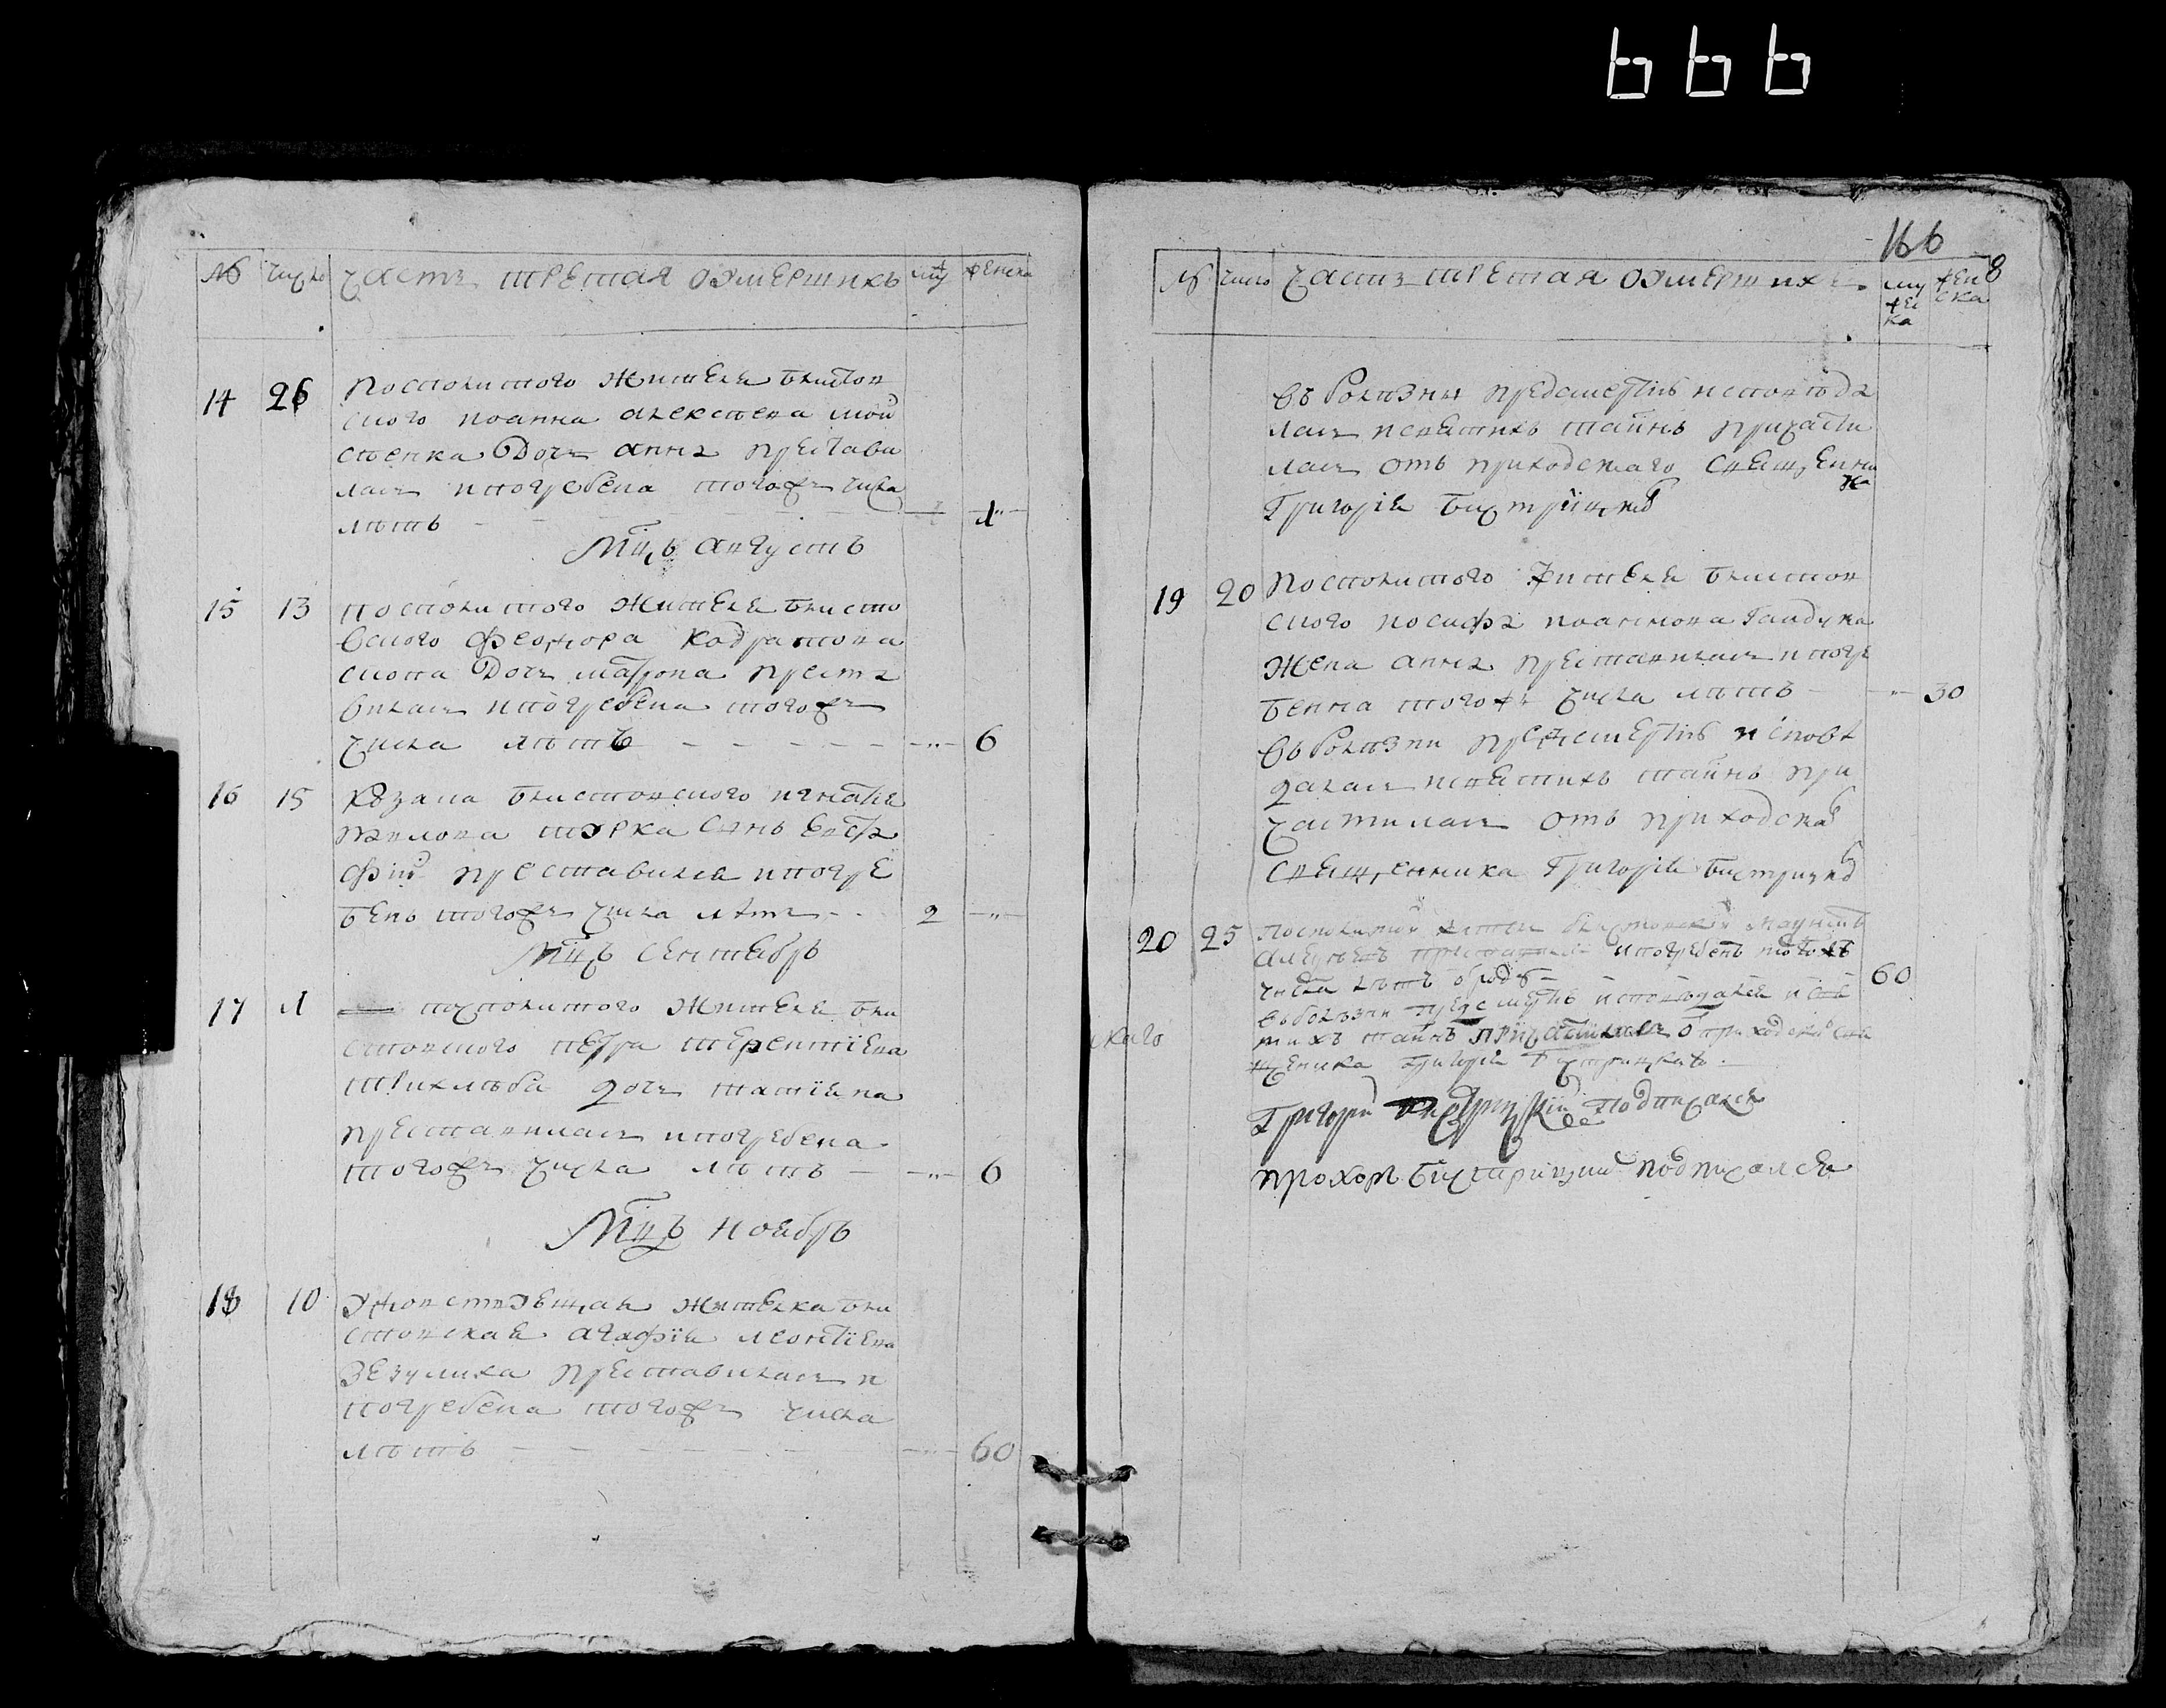 666
№ число часть третая о умерших муж женска
14 26 Посполитого жителя блистов
ского Иоанна Алексеева Мой
сеенка дочь Анна престави
лась и погребена того ж числа
лѣтъ 1
Мцъ августъ
15 13 посполитого жителя блисто
вского Феодора Кодратова
дочь Матрона преста
вилась и погребена того ж
числа лѣтъ 6
16 15 Козака блистовского Игнатия
сынъ Евста
фий преставился и погре
бенъ того ж числа лѣтъ 2
Мцъ сентябръ
17 1 посполитого жителя бли
стовского Петра Терентиева
дочь Татияна
преставилась и погребена
того ж числа лѣтъ 6
Мцъ ноябръ
18 10 жителка бли
стовская Агафия Леонтиева
Зезулиха преставилась и
погребена того ж числа
лѣтъ 60
166
8
№ число часть третая о умерших мужеска женска
въ болѣзни предсмертнѣ исповѣда
лась и святихъ тайнъ причасти
лась отъ приходскаго священни
ка
Григория Бистрицкаго
19 20 Посполитого жителя блистов
ского Иосифа Иоакимова Гайдука
жена Анна преставилась и погре
бенна того ж числа лѣтъ 30
въ болѣзни предсмертнѣ исповѣ
далась и святихъ тайнъ при
частилась отъ приходскаго
священника Григория Бистрицкаго
20 25 Посполитий житель блистовский
преставился и погребенъ того жъ
числа лѣтъ 60
въ болѣзни предсмертнѣ исповѣдался и свя
тихъ тайнъ причастился от приходскаго свя
щеника Григория Бистрицкаго
скаго
Григорий Бистрицкий подписался
Прохоръ Бистрицкий подписался